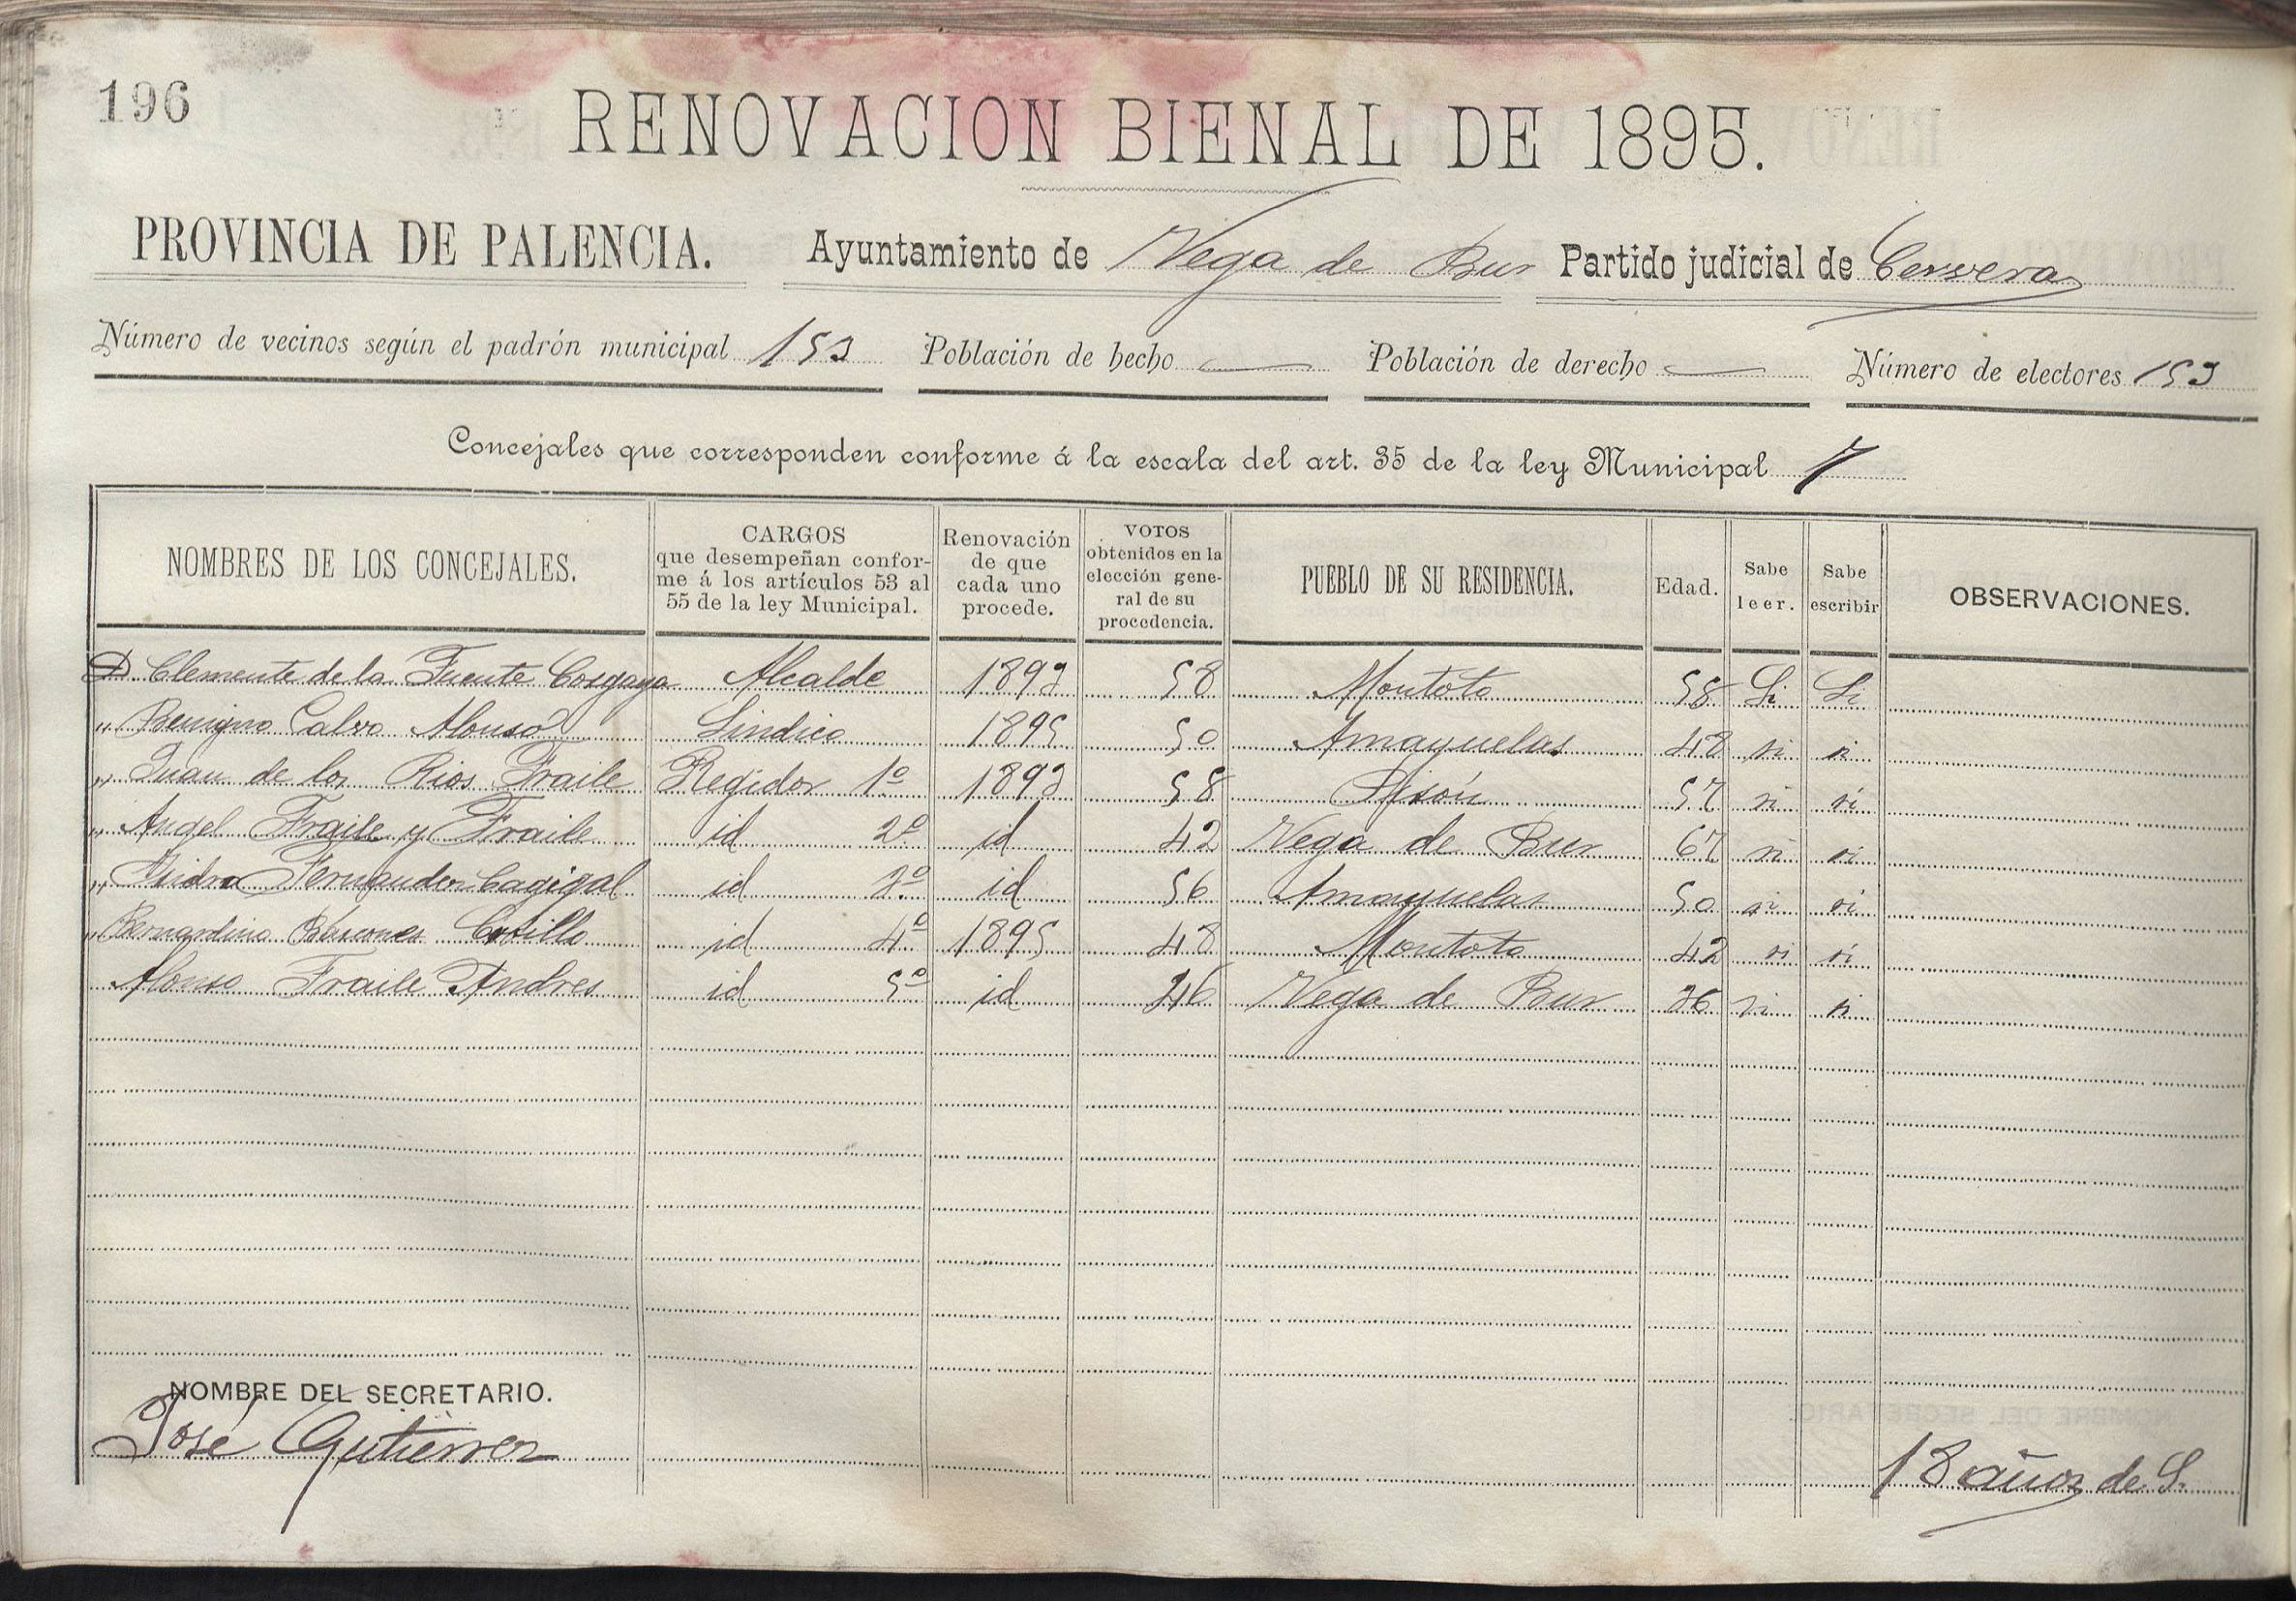 196
RENOVACION BIENAL DE 1895.
PROVINCIA DE PALENCIA. Ayuntamiento de Vega de Bur Partido judicial de Cervera
Número de vecinos según el padrón municipal 153 Población de hecho — Población de derecho — Número de electores 153
Concejales que corresponden conforme á la escala del art. 35 de la ley Municipal 7
NOMBRES DE LOS CONCEJALES. CARGOS que desempeñan conforme á los artículos 53 al 55 de la ley Municipal. Renovación de que cada uno procede. VOTOS obtenidos en la elección general de su procedencia. PUEBLO DE SU RESIDENCIA. Edad. Sabe leer. Sabe escribir OBSERVACIONES.
D Clemente de la Fuente Cosgaya Alcalde 1893 58 Montoto 58 Si Si
" Benigno Calvo Alonso Sindico 1895 50 Amayuelas 48 si si
" Juan de los Rios Fraile Regidor 1º 1893 58 Pisón 57 si si
" Angel Fraile y Fraile id 2º id 42 Vega de Bur 67 si si
" Isidro Fernandez Cagigal id 3º id 56 Amayuelas 50 si si
" Bernardino Báscones Cosillo id 4º 1895 48 Montoto 42 si si
Alonso Fraile Andres id 5º id 36 si si Vega de Bur
NOMBRE DEL SECRETARIO.
José Gutierrez 18 años de S.